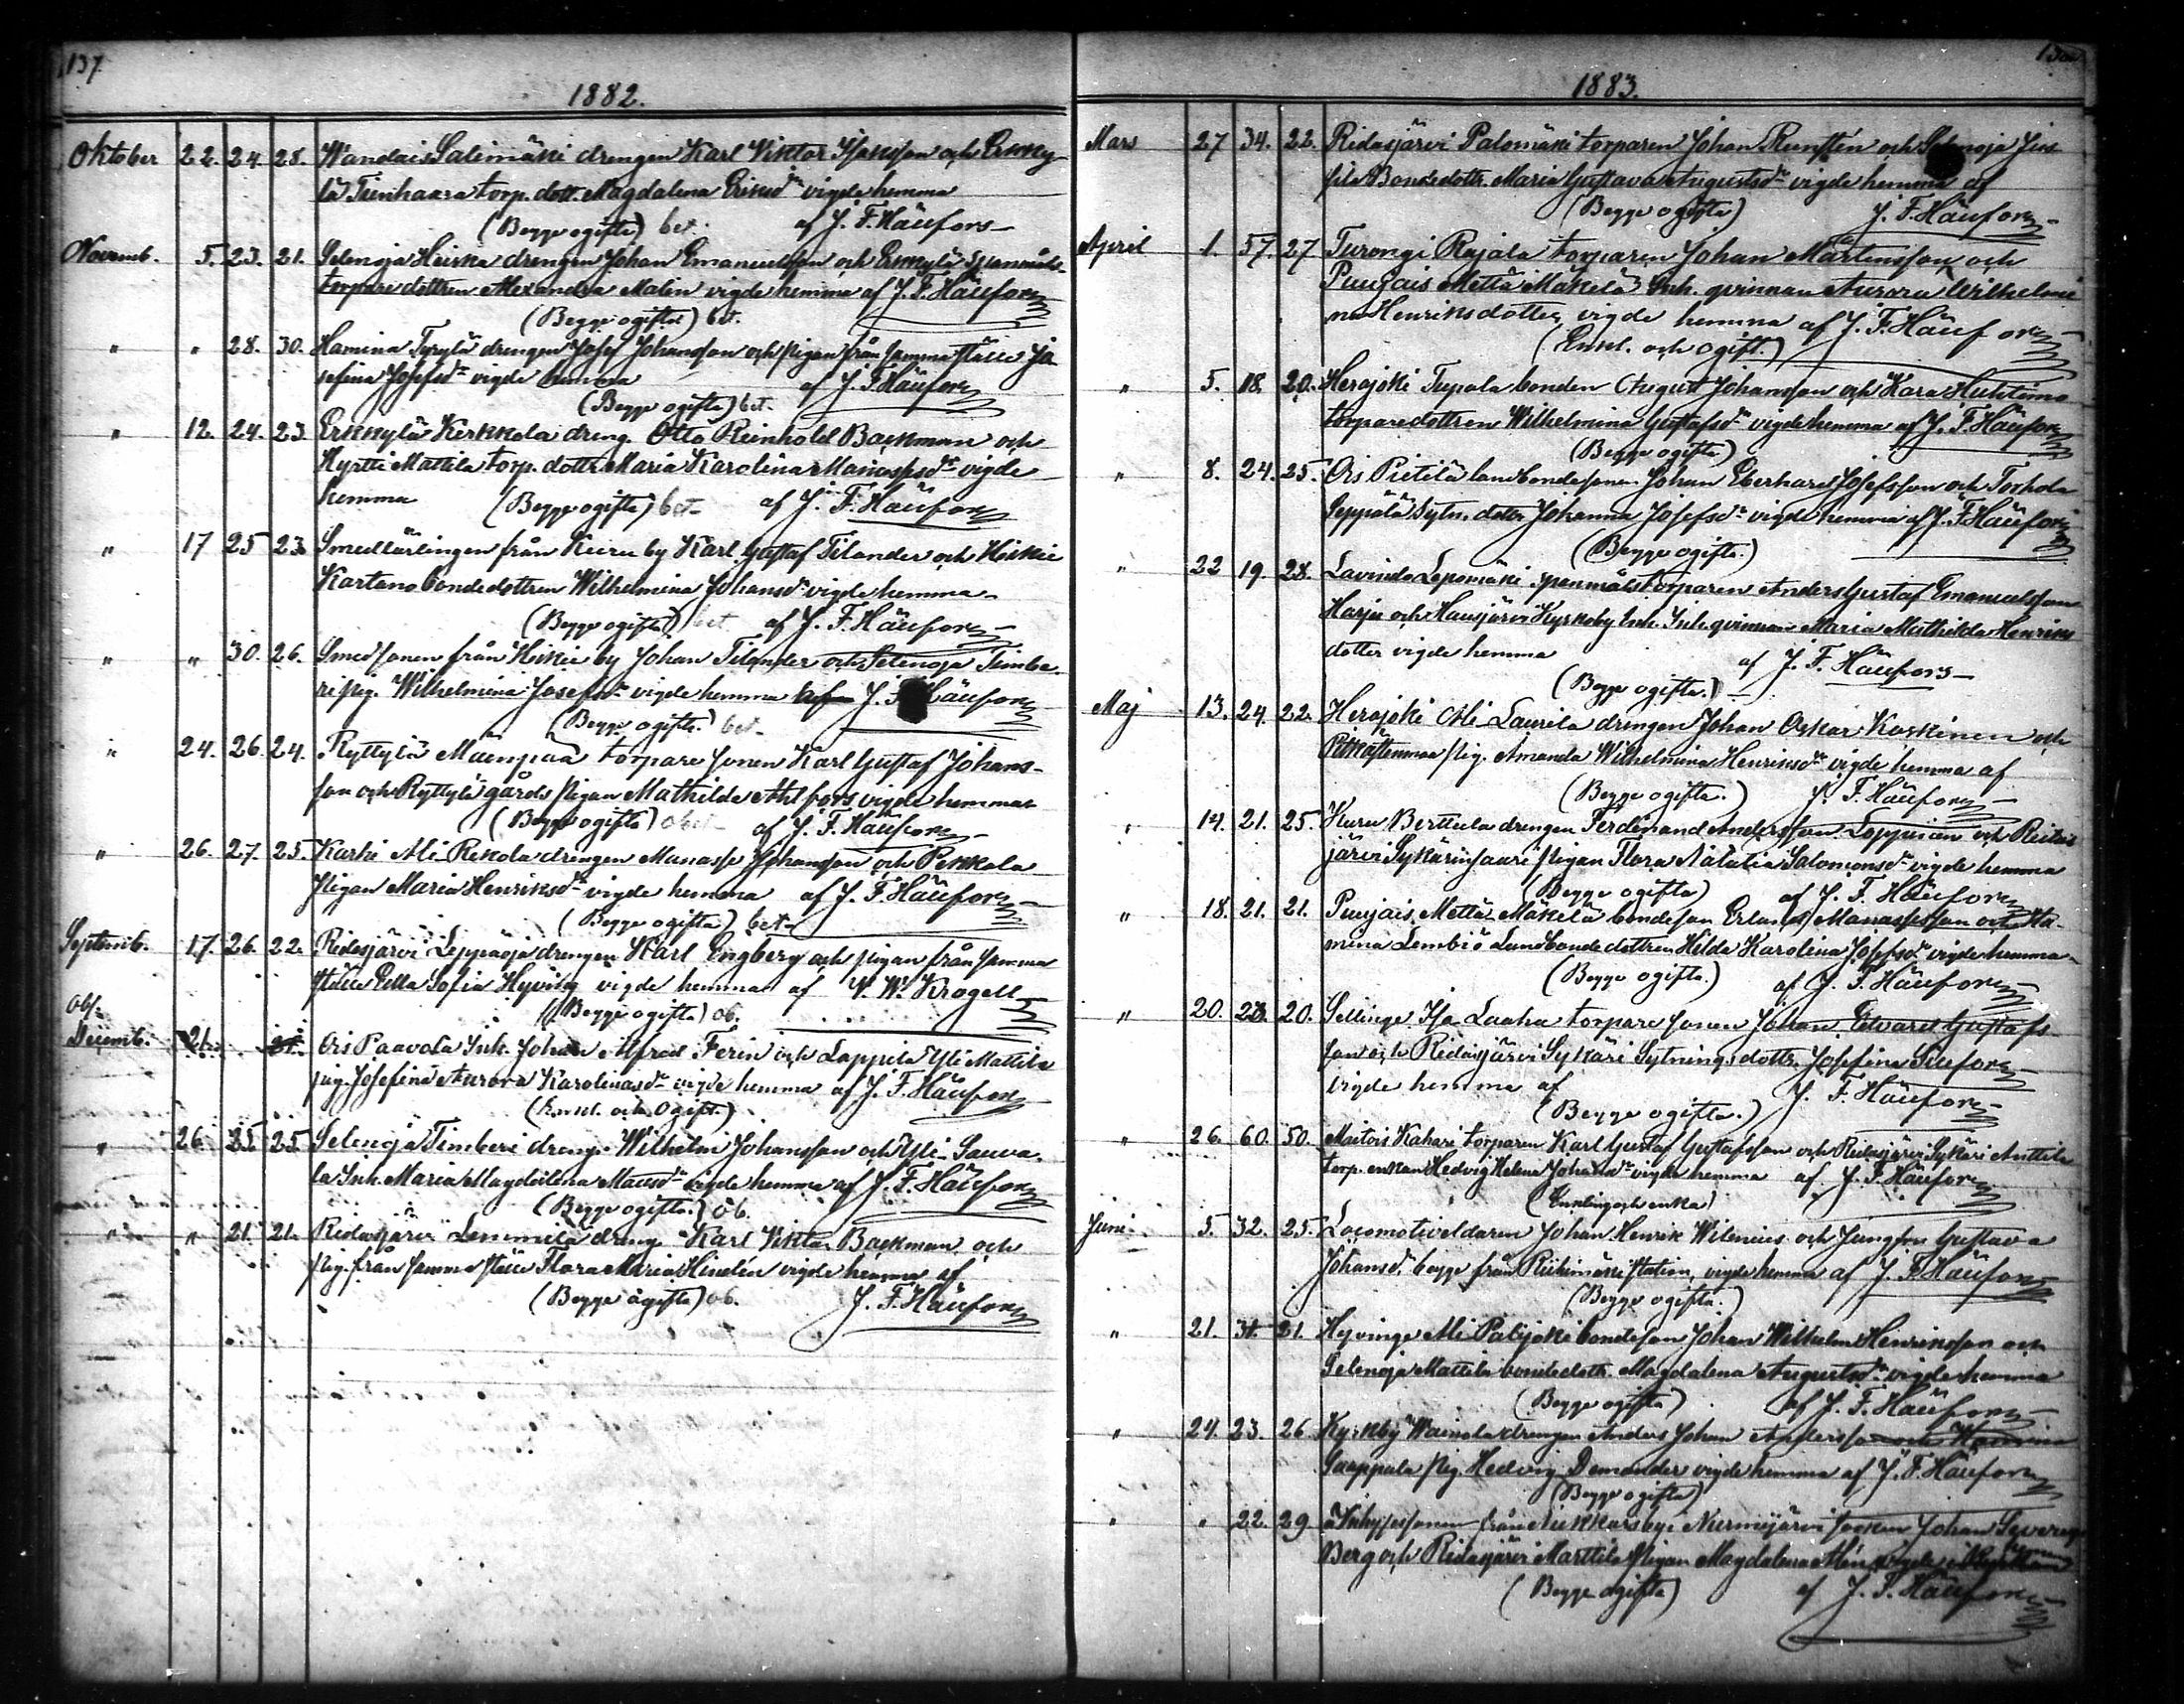 137.
1882.
Oktober 22. 24. 28. Wandais Salimäki drengen Karl Viktor Isaksson och Erkky-
lä Tienhaara torp. dott. Magdalena Eriksdr vigde hemma
(Begge ogifta) bet. af J. F. Häufors
Novemb. 5. 23. 21. Selenoja Heiska drengen Johan Emanuelsson och Erkylä Spanmåls-
torpare dottren Alexandra Malin vigde hemma af J. F. Häufors
(Begge ogifta) bet.
" " 28. 30. Hamina Tyrylä drengen Josef Johansson och pigan från samma ställe Jo
sefina Josefsdr vigde hemma af J. F. Häufors
(Begge ogifta) bet.
" 12. 24. 23. Erkkylä Kerkkola dreng. Otto Reinhold Backman och
Hyrtti Mattila torp. dottr. Maria Karolina Manassesdr vigde
hemma (Begge ogifta) bet. af J. F. Häufors
" 17 25 23 Smedlärlingen från Kuru by Karl Gustaf Tilander och Hikie
Kartano bondedottren Wilhelmina Johansdr vigde hemma
(Begge ogifta) bet. af J. F. Häufors
" " 30. 26. Smedsonen från Hikie by Johan Tilander och Selenoja Timbe-
ri pig. Wilhelmina Josefsdr vigde hemma af J. F. Häufors
(Begge ogifta) bet.
" 24. 26. 24. Ryttylä Mäenpää torpare sonen Karl Gustaf Johans-
son och Ryttylä gårds pigan Mathilda Ahlfors vigde hemma
(Begge ogifta) obet. af J. F. Häufors
" 26. 27. 25. Karhi Ali Rekola drengen Manasse Johansson och Pekkola
pigan Maria Henriksdr vigde hemma af J. F. Häufors
(Begge ogifta) bet.
Septemb. 17. 26. 22. Ridasjärvi Leppäoja drengen Karl Engberg och pigan från samma
ställe Sofia Hyving vigde hemma af V. W. Krogell
(Begge ogifta) ob.
obs.
Decemb. 21. 21. Ois Paavola Inh. Johan Alfred Ferin och Lappila Yli Mattila
pig. Josefina Aurora Karolinasdr vigde hemma af J. F. Häufors
(Enkl. och Ogift.)
" 26. 25. 25 Selenoja Timberi dreng. Wilhelm Johansson och Yli-Sauva-
la Inh. Maria Magdalena Matsdr vigde hemma af J. F. Häufors
(Begge ogifta.) ob.
" " 21. 21. Ridasjärvi Lemmilä dreng Karl Viktor Backman och
pig. från samma ställe Flora Maria Hindén vigde hemma af
(Begge ogifta) ob. J. F. Häufors
1883.
Mars 27 34. 22. Ridasjärvi Palomäki torparen Johan Runstén och Selenoja Jus
sila Bondedottr. Maria Gustava Augustsdr vigde hemma af
(Begge ogifta) J. F. Häufors
April 1. 57. 27. Turongi Rajala torparen Johan Mårtensson och
Puujais Mettä Mäkelä Inh. qvinnan Aurora Wilhelmi
na Henriksdotter vigde hemma af J. F. Häufors
(Enkl. och ogift.)
" 5. 18. 20. Herajoki Tupala bonden August Johansson och Kara Huhtimo
torparedottren Wilhelmina Gustafsdr vigde hemma af J. F. Häufors
(Begge ogifta)
" 8. 24. 25. Ois Pietilä landbondesonen Johan Eberhard Josefsson och Torhola
Seppälä Sytn. dottr Johanna Josefsdr vigde hemma af J. F. Häufors
(Begge ogifta.)
" 22 19. 28. Lavinda Lepomäki spanmålstorparen Anders Gustaf Emanuelsson
Harju och Hausjärvi Kyrkoby Inh. qvinnan Maria Mathilda Henriks
dotter vigde hemma af J. F. Häufors
(Begge ogifta.)
Maj 13. 24 22. Herajoki Ali-Laurila drengen Johan Oskar Koskinen och
pig. Amanda Wilhelmina Henriksdr vigde hemma af
(Begge ogifta.) J. F. Häufors
" 14. 21. 25. Kuru Berttula drengen Ferdinand Andersson Loppinen och Ridas
järvi Sykärinsaari pigan Flora Natalia Salomonsdr vigde hemma
(Begge ogifta) af J. F. Häufors
" 18. 21. 21. Puujais Mettä Mäkelä bondeson Erland Manassesson och Ha-
mina Lembiö Landbonde dottren Hilda Karolina Josefsdr vigde hemma
(Begge ogifta.) af J. F. Häufors
" 20. 23. 20. Sellinge Iso Laaha torpare sonen Johan Edvard Gustafs-
son och Ridasjärvi Sykäri Sytnings dottr. Josefina
vigde hemma af
(Begge ogifta.) J. F. Häufors
" 26. 60. 50. Maitois Kahari torparen Karl Gustaf Gustafsson och Ridasjärvi Sykäri Anttila
torp. enkan Hedvig Helena Johansdr vigde hemma af J. F. Häufors
(Enkling och enka)
Juni 5. 32. 25. Locomotiveldaren Johan Henrik Wilenius och Jungfrun Gustava
Johansdr begge från Riihimäki station, vigde hemma af J. F. Häufors
(Begge ogifta.)
" 21. 31. 21. Hyvinge Ali Palojoki bondeson Johan Wilhelm Henriksson och
Selenoja Mattila bondedottr. Magdalena Augustsdr vigde hemma
(Begge ogifta) af J. F. Häufors
" 24. 23. 26 Kyrkby Wainola drengen Anders Johan Andersson och Hamina
Saappala pig. Hedvig Demander vigde hemma af J. F. Häufors
(Begge ogifta)
" " 22. 29 från Nukkarsby i Nurmijärvi socken Johan
Berg och Ridasjärvi Marttila pigan Magdalena vigde hemma
(Begge ogifta) af J. F. Häufors